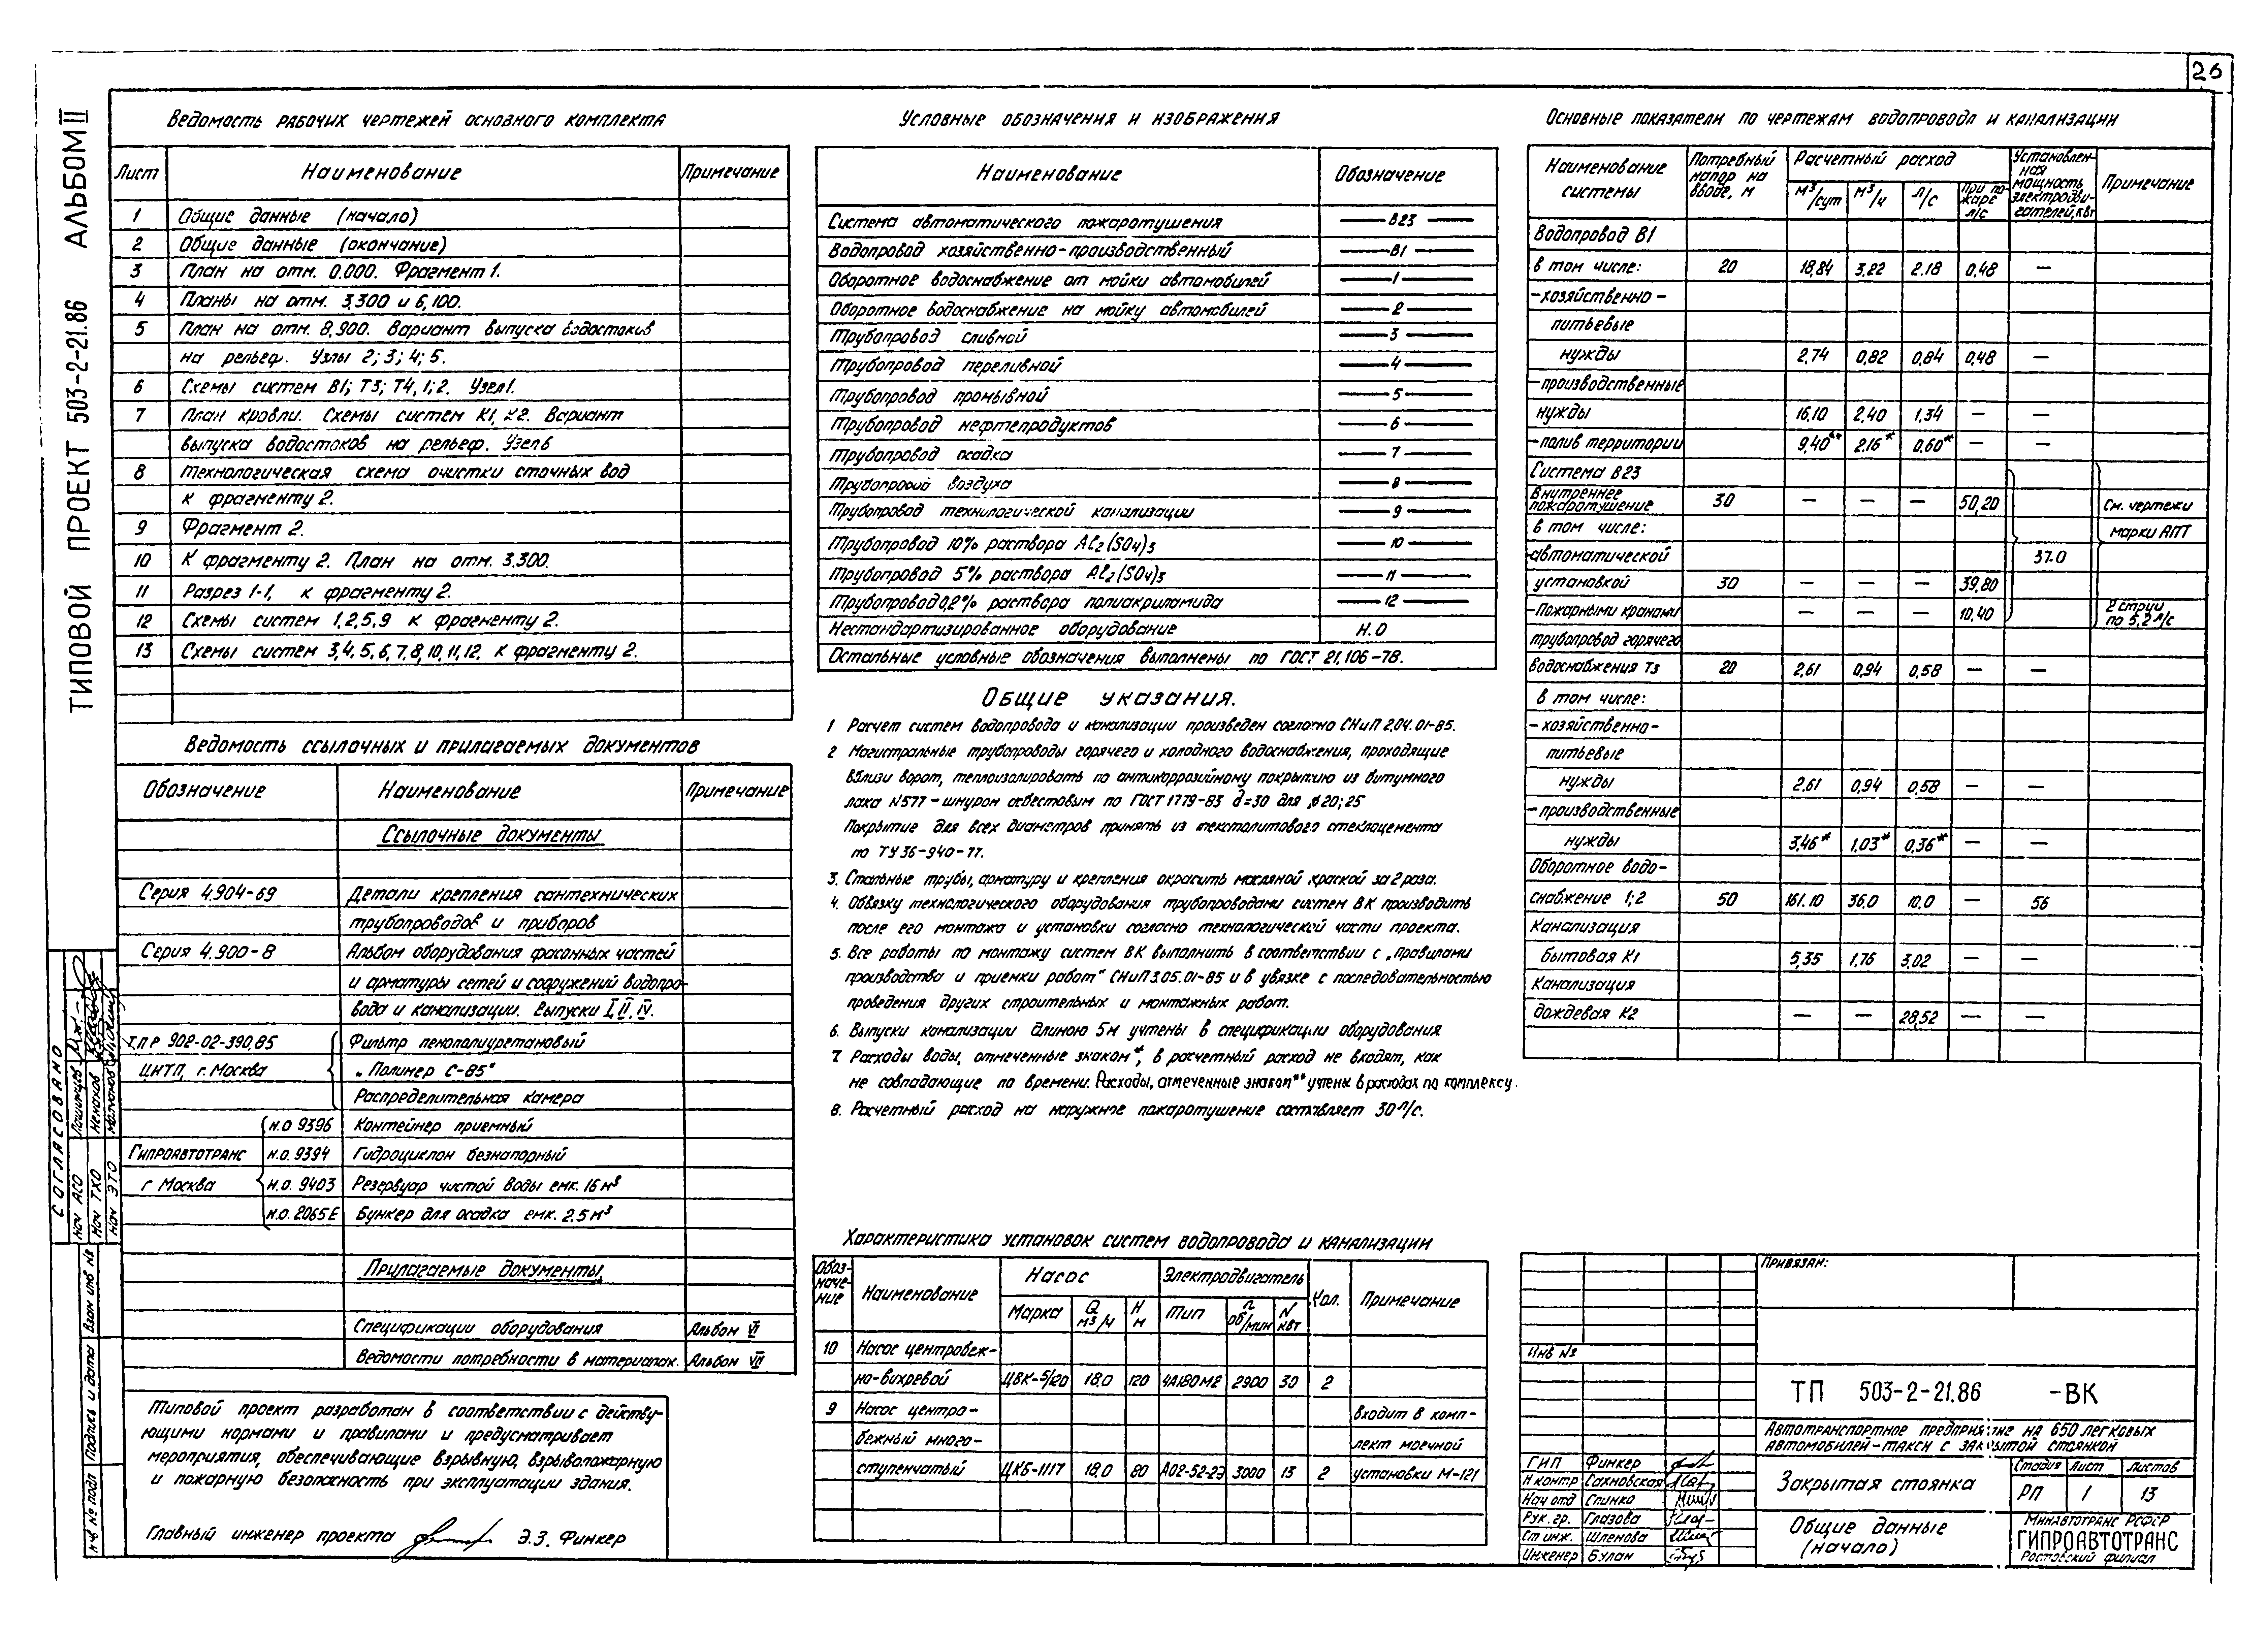 26
ТИПОВОЙ ПРОЕКТ 503-2-21.86 АЛЬБОМ II
Ведомость рабочих чертежей основного комплекта
Лист Наименование Примечание
1 Общие данные (начало)
2 Общие данные (окончание)
3 План на отм. 0.000. Фрагмент 1.
4 Планы на отм. 3,300 и 6,100.
5 План на отм. 8,900. Вариант выпуска водостоков
на рельеф. Узлы 2; 3; 4; 5.
6 Схемы систем В1; Т3; Т4, 1; 2. Узел 1.
7 План кровли. Схемы систем К1, К2. Вариант
выпуска водостоков на рельеф. Узел 6
8 Технологическая схема очистки сточных вод
к фрагменту 2.
9 Фрагмент 2.
10 К фрагменту 2. План на отм. 3.300.
11 Разрез 1-1, к фрагменту 2.
12 Схемы систем 1,2,5,9 к фрагменту 2.
13 Схемы систем 3,4,5,6,7,8,10,11,12. к фрагменту 2.
Ведомость ссылочных и прилагаемых документов
Обозначение Наименование Примечание
Ссылочные документы
Серия 4.904-69 Детали крепления сантехнических
трубопроводов и приборов
Серия 4.900-8 Альбом оборудования фасонных частей
и арматуры сетей и сооружений водопро-
вода и канализации. Выпуски I, II, IV.
Т.П.Р 902-02-390.85 Фильтр пенополиуретановый
ЦИТП, г. Москва „Полимер С-85"
Распределительная камера
н.о 9396 Контейнер приемный
Гипроавтотранс н.о. 9394 Гидроциклон безнапорный
г Москва н.о. 9403 Резервуар чистой воды емк. 16 м³
н.о. 2065Е Бункер для осадка емк. 2.5 м³
Прилагаемые документы
Спецификации оборудования Альбом VI
Ведомости потребности в материалах. Альбом VII
Типовой проект разработан в соответствии с действу-
ющими нормами и правилами и предусматривает
мероприятия, обеспечивающие взрывную, взрывопожарную
и пожарную безопасность при эксплуатации здания.
Главный инженер проекта Э.З. Финкер
Условные обозначения и изображения
Наименование Обозначение
Система автоматического пожаротушения В23
Водопровод хозяйственно-производственный В1
Оборотное водоснабжение от мойки автомобилей 1
Оборотное водоснабжение на мойку автомобилей 2
Трубопровод сливной 3
Трубопровод переливной 4
Трубопровод промывной 5
Трубопровод нефтепродуктов 6
Трубопровод осадка 7
Трубопровод воздуха 8
Трубопровод технологической канализации 9
Трубопровод 10% раствора Al₂(SO₄)₃ 10
Трубопровод 5% раствора Al₂(SO₄)₃ 11
Трубопровод 0,2% раствора полиакриламида 12
Нестандартизированное оборудование Н.О
Остальные условные обозначения выполнены по ГОСТ 21.106-78.
Общие указания.
1 Расчет систем водопровода и канализации произведен согласно СНиП 2.04.01-85.
2 Магистральные трубопроводы горячего и холодного водоснабжения, проходящие
вблизи ворот, теплоизолировать по антикоррозийному покрытию из битумного
лака N577 - шнуром асбестовым по ГОСТ 1779-83 d=30 для ø 20; 25
Покрытие для всех диаметров принять из текстолитового стеклоцемента
по ТУ 36-940-77.
3. Стальные трубы, арматуру и крепления окрасить масляной краской за 2 раза.
4. Обвязку технологического оборудования трубопроводами систем ВК производить
после его монтажа и установки согласно технологической части проекта.
5. Все работы по монтажу систем ВК выполнить в соответствии с „Правилами
производства и приемки работ" СНиП 3.05.01-85 и в увязке с последовательностью
проведения других строительных и монтажных работ.
6. Выпуски канализации длиною 5м учтены в спецификации оборудования
7. Расходы воды, отмеченные знаком *, в расчетный расход не входят, как
не совпадающие по времени. Расходы, отмеченные знаком ** учтены в расходах по комплексу.
8. Расчетный расход на наружное пожаротушение составляет 30 л/с.
Характеристика установок систем водопровода и канализации
Обоз-
наче-
ние Наименование Насос Электродвигатель Кол. Примечание
Марка Q м³/ч Н м Тип n об/мин N кВт
10 Насос центробеж-
но-вихревой ЦВК-5/120 18.0 120 4А180М2 2900 30 2
9 Насос центро- входит в комп-
бежный много- лект моечной
ступенчатый ЦКБ-1117 18.0 80 А02-52-2Э 3000 13 2 установки М-121
Основные показатели по чертежам водопровода и канализации
Наименование системы Потребный напор на вводе, м Расчетный расход Установлен-
ная мощность электродви-
гателей, кВт Примечание
м³/сут м³/ч л/с При по-
жаре л/с
Водопровод В1
в том числе: 20 18,84 3,22 2.18 0,48 —
-хозяйственно-
питьевые
нужды 2,74 0,82 0,84 0,48 —
-производственные
нужды 16.10 2,40 1,34 — —
-полив территории 9,40** 2.16* 0,60* — —
Система В23
Внутреннее
пожаротушение 30 — — — 50,20 См. чертежи
в том числе: марки АПТ
-автоматической 37.0
установкой 30 — — — 39.80
-Пожарными кранами — — — 10,40 2 струи
по 5,2 л/с
трубопровод горячего
водоснабжения Т3 20 2,61 0,94 0,58 — —
в том числе:
-хозяйственно-
питьевые
нужды 2.61 0,94 0,58 — —
-производственные
нужды 3,46* 1,03* 0,36* — —
Оборотное водо-
снабжение 1; 2 50 161.10 36.0 10.0 — 56
Канализация
бытовая К1 5,35 1,76 3,02 — —
Канализация
дождевая К2 — — 28,52 — —
Согласовано
Нач АСО
Нач ТХО
Нач ЭТО
Взам инв №
Подпись и дата
Инв № подл
Привязан:
Инв №
ТП 503-2-21.86 -ВК
Автотранспортное предприятие на 650 легковых
автомобилей-такси с закрытой стоянкой
ГИП Финкер
Н контр Сахновская
Нач отд Спинко
Рук. гр. Глазова
Ст инж. Шленова
Инженер Булан
Закрытая стоянка
Стадия Лист Листов
РП 1 13
Общие данные
(начало)
Минавтотранс РСФСР
ГИПРОАВТОТРАНС
Ростовский филиал